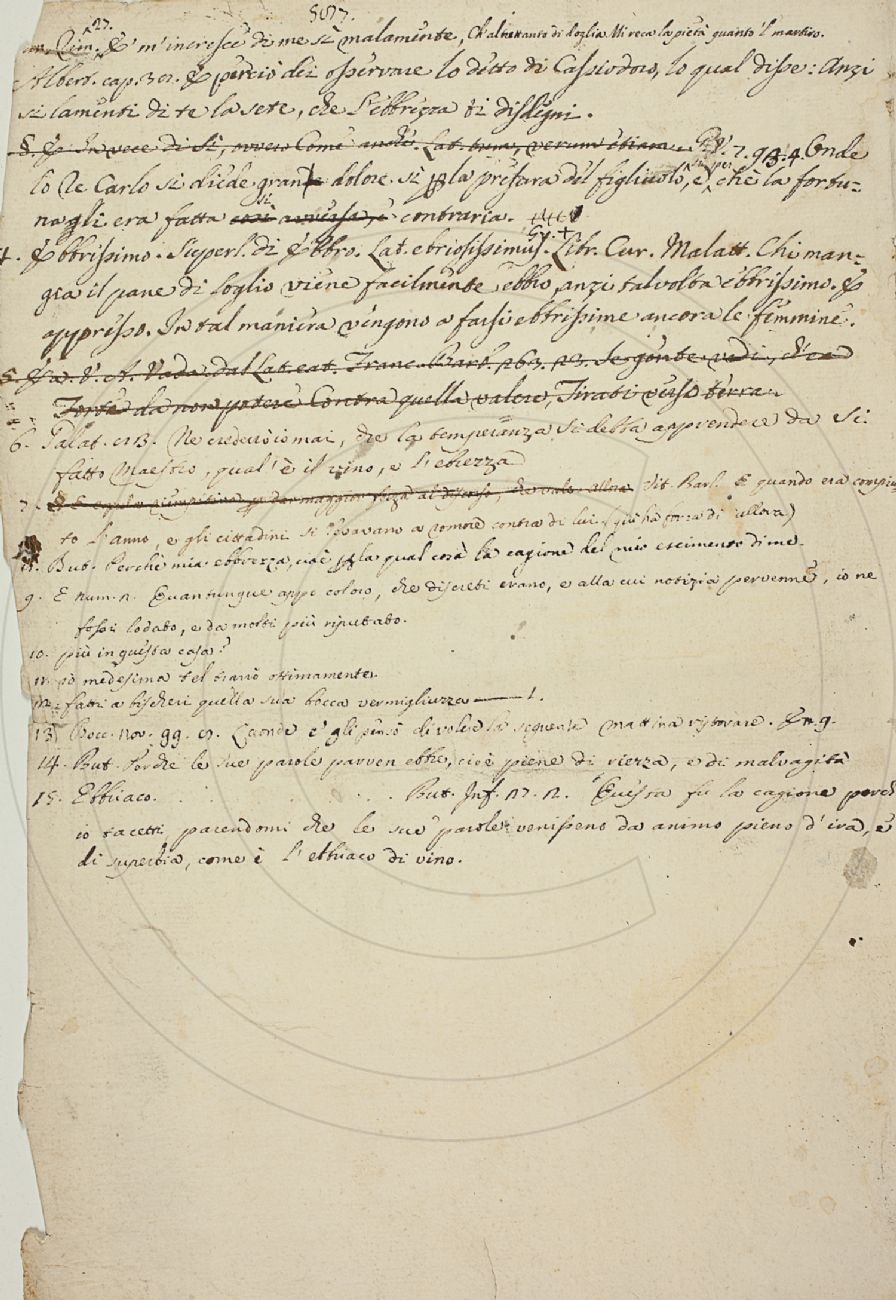 5077.
Rim. 27. E' m'incresce di me sì malamente, Ch'altrettanto di doglia Mi reca la pietà quanto 'l martiro.
Albert. cap. 30. E perciò dei osservare lo detto di Cassiodoro, lo qual disse: Anzi
si lamenti di te la sete, che l'ebbrezza ti disdegni.
§. E In vece di Sì, ovvero Come anche. Lat. tum, verum etiam. G. V. 7. 93. 4. Onde
lo Re Carlo si diede gran dolore sì per la presura del figliuolo, e sì perchè la fortu-
na gli era fatta contraria.
Ebbrissimo. Superl. di Ebbro. Lat. ebriosissimus. Gr. Libr. Cur. Malatt. Chi man-
gia il pane di loglio viene facilmente ebbro, anzi talvolta ebbrissimo. E
appresso. In tal maniera vengono a farsi ebbrissime ancora le femmine.
§. Franc. Barb. 263. 23. Se gente vedi, ch'ea
Forte da non potere Contra quella valere, Tirati verso terra.
6. Talat. 13. Ne crederò io mai, che la temperanza si debba apprendere da sì
fatto Maestro, qual'è il vino, e l'ebrezza
7. Vit. Barl. E quando era compiu-
to l'anno, e gli cittadini si levavano a romore contra di lui. (qui ha forza di allora)
8. But. Perchè mia ebbrezza, cioè per la qual cosa la cagione del mio escimento di me.
9. E num. 2. Quantunque appo coloro, che discreti erano, e alla cui notizia pervenne, io ne
fossi lodato, e da molti più reputato.
10. più in questa casa?
11. ed medesima tel trarrò ottimamente.
12. fatti a bischeri quella sua bocca vermigliuzza — 1.
13. Bocc. nov. 99. Laonde e' gli pensò di volere la seguente mattina ristorare. E n. 9.
14. But. Perchè le sue parole parven ebbre, cioè piene di rezza, e di malvagità
15. Ebbriaco. . . . . . But. Inf. 27. 2. Questa fu la cagione perch'
io tacetti, parendomi che le sue parole venisseno da animo pieno d'ira, e
di superbia, come è l'ebbriaco di vino.